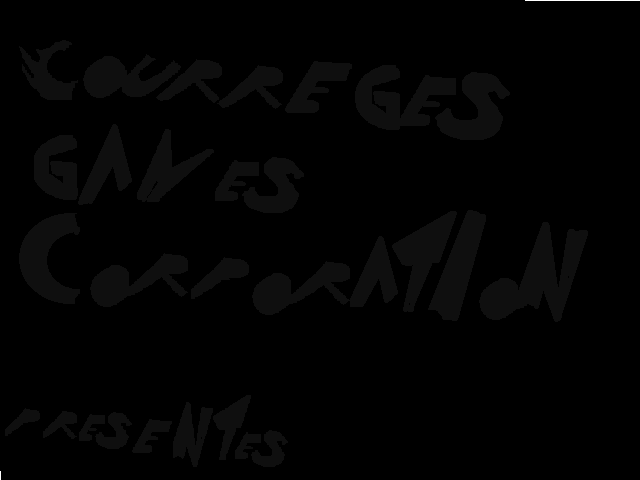 COURREGES
GAMES
CORPORATION
PRESENTES